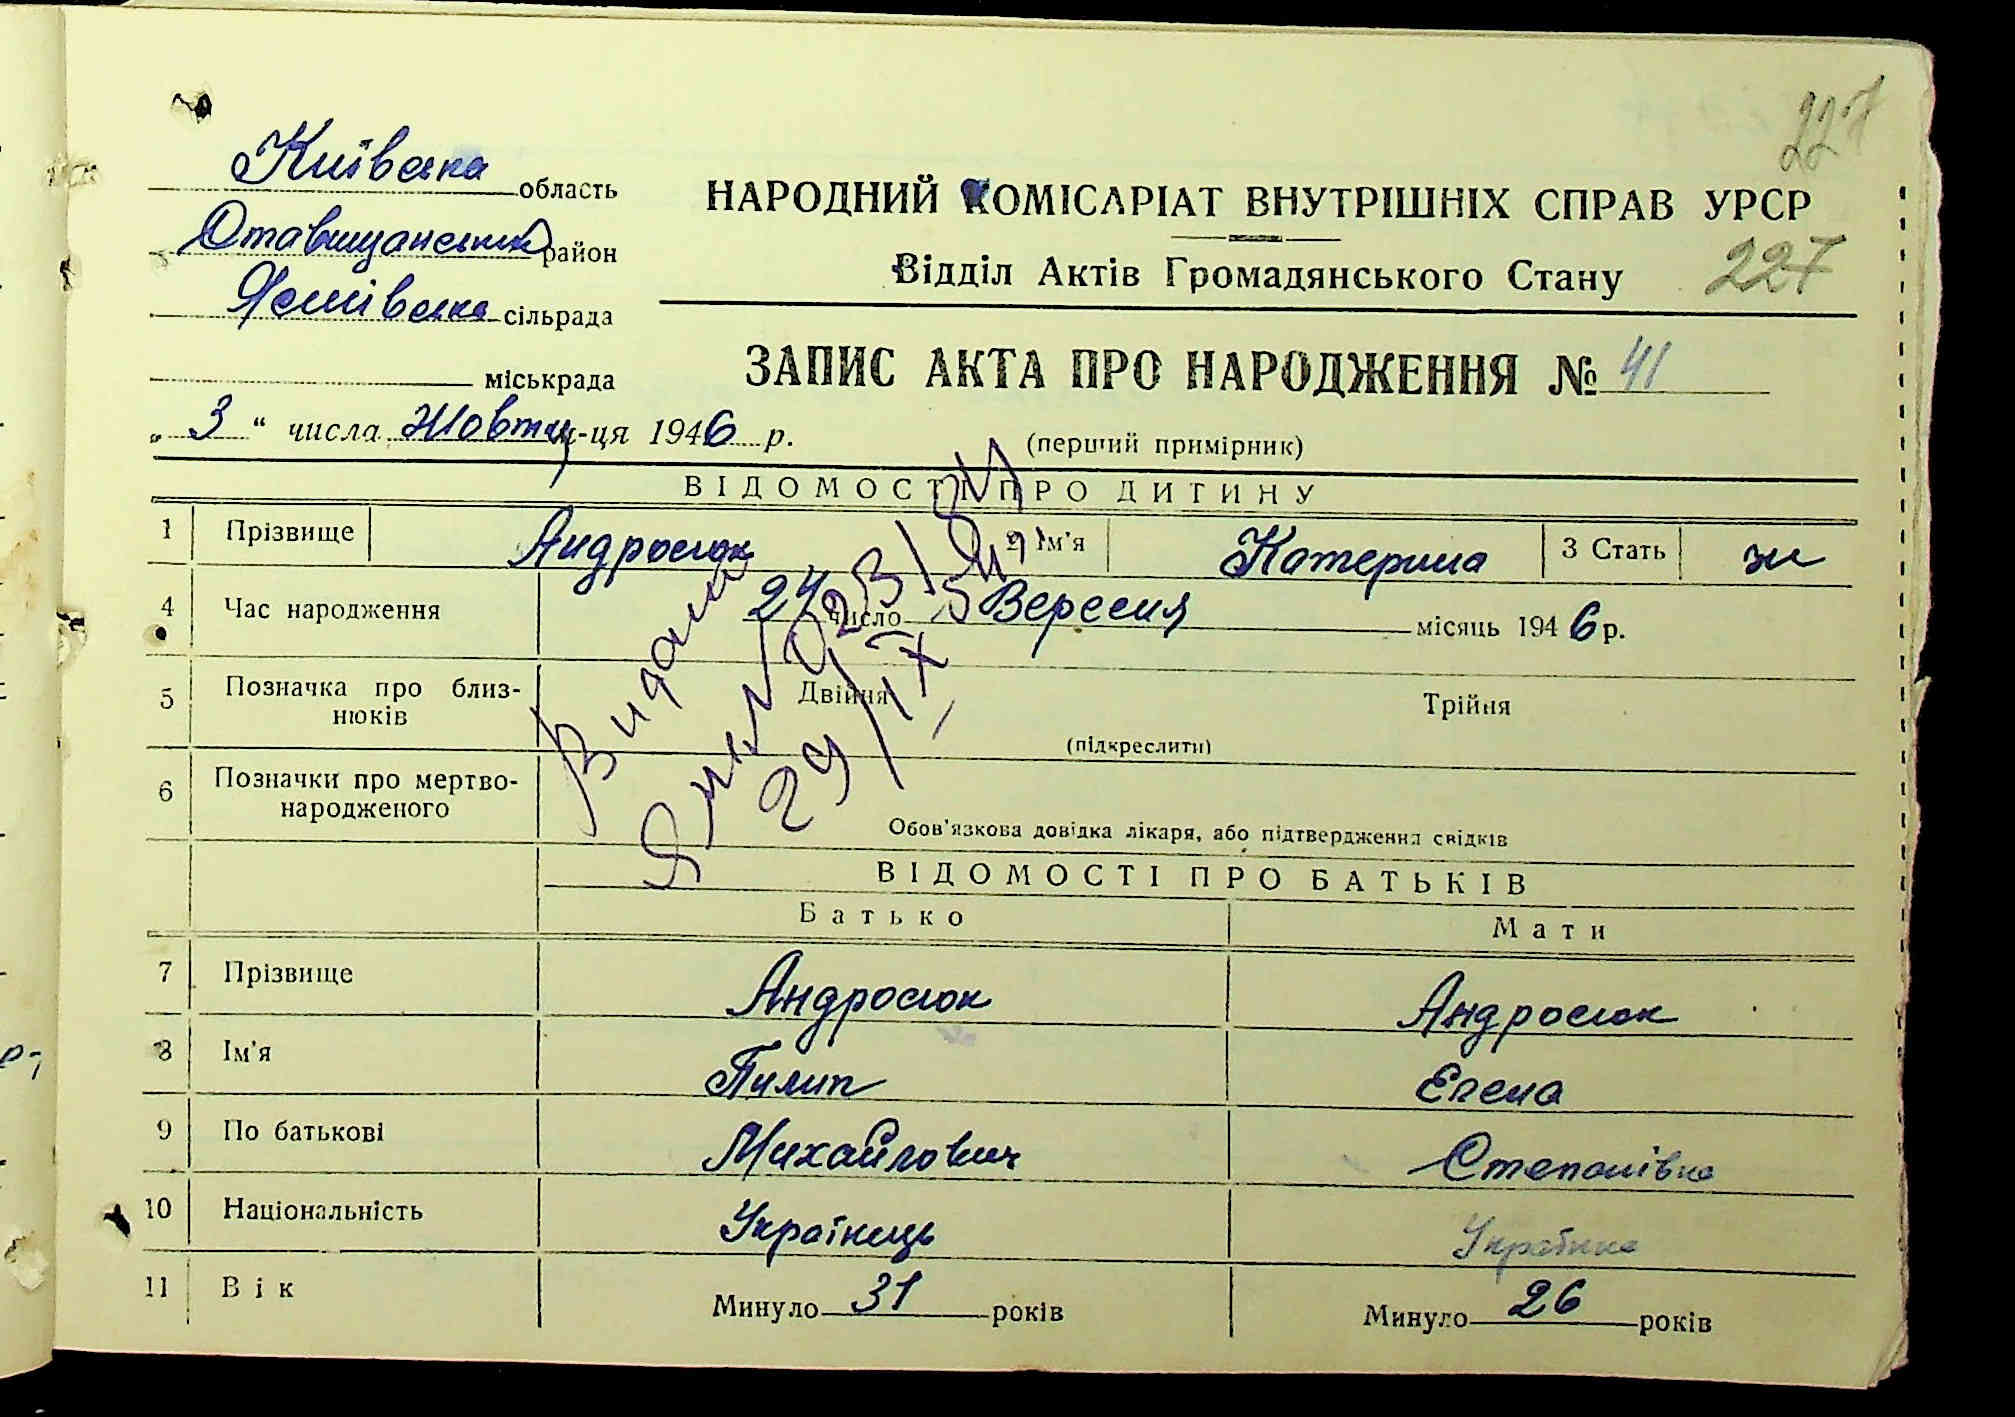 227
Київська область
Ставищанський район
сільрада
міськрада
НАРОДНИЙ КОМІСАРІАТ ВНУТРІШНІХ СПРАВ УРСР
Відділ Актів Громадянського Стану
227
ЗАПИС АКТА ПРО НАРОДЖЕННЯ № 41
(перший примірник)
„ 3 “ числа Жовтн м-ця 1946 р.
ВІДОМОСТІ ПРО ДИТИНУ
1 Прізвище Андросюк 2 Ім'я Катерина 3 Стать ж
4 Час народження 24 число Вересня місяць 1946 р.
5 Позначка про близнюків Двійня Трійня
(підкреслити)
6 Позначки про мертвонародженого
Обов'язкова довідка лікаря, або підтвердження свідків
Видано
29/IX
ВІДОМОСТІ ПРО БАТЬКІВ
Батько Мати
7 Прізвище Андросюк Андросюк
8 Ім'я Пилип Елена
9 По батькові Михайлович Степанівна
10 Національність Українець Українка
11 Вік Минуло 31 років Минуло 26 років